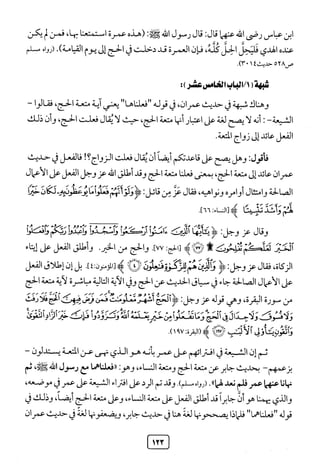 ابن عباس رضى الله عنهما قال: قال رسول الله ﷺ: (هذه عمرة استمتعنا بها، فمن لم يكن
عنده الهدي فليحل الحل كله، فإن العمرة قد دخلت في الحج إلى يوم القيامة). (رواه مسلم
ص٥٢٨ حديث ٣٠١٤).
شبهة (١/الباب الخامس عشر):
وهناك شبهة في حديث عمران، في قوله "فعلناها" يعني آية متعة الحج، فقالوا -
الشيعة -: أنه لا يصح لغة على اعتبار أنها متعة الحج، حيث لا يُقال فعلت الحج، وأن ذلك
الفعل عائد إلى زواج المتعة.
فأقول: وهل يصح على قاعدتكم أيضاً أن يُقال فعلت الزواج؟! فالفعل في حديث
عمران عائد إلى متعة الحج، بمعنى فعلنا متعة الحج وقد أطلق الله عز وجل الفعل على الأعمال
الصالحة وامتثال أوامره ونواهيه، فقال عز من قائل: ﴿وَلَوْ أَنَّهُمْ فَعَلُوا مَا يُوعَظُونَ بِهِ لَكَانَ خَيْرًا
لَهُمْ وَأَشَدَّ تَثْبِيتًا﴾ [النساء: ٦٦].
وقال عز وجل: ﴿يَا أَيُّهَا الَّذِينَ آمَنُوا ارْكَعُوا وَاسْجُدُوا وَاعْبُدُوا رَبَّكُمْ وَافْعَلُوا
الْخَيْرَ لَعَلَّكُمْ تُفْلِحُونَ ۩ ٧٧﴾ [الحج: ٧٧]. والحج من الخير. وأطلق الفعل على إيتاء
الزكاة، فقال عز وجل: ﴿وَالَّذِينَ هُمْ لِلزَّكَاةِ فَاعِلُونَ ٤﴾ [المؤمنون: ٤]. بل إن إطلاق الفعل
على الأعمال الصالحة جاء في سياق الحديث عن الحج وفي الآية التالية مباشرة لآية متعة الحج
من سورة البقرة، وهي قوله عز وجل: ﴿الْحَجُّ أَشْهُرٌ مَعْلُومَاتٌ فَمَنْ فَرَضَ فِيهِنَّ الْحَجَّ فَلَا رَفَثَ
وَلَا فُسُوقَ وَلَا جِدَالَ فِي الْحَجِّ وَمَا تَفْعَلُوا مِنْ خَيْرٍ يَعْلَمْهُ اللَّهُ وَتَزَوَّدُوا فَإِنَّ خَيْرَ الزَّادِ التَّقْوَى
وَاتَّقُونِ يَا أُولِي الْأَلْبَابِ ١٩٧﴾ (البقرة: ١٩٧).
ثم إن الشيعة في افترائهم على عمر بأنه هو الذي نهى عن المتعة يستدلون -
بزعمهم - بحديث جابر عن متعة الحج ومتعة النساء، وهو: «فعلناهما مع رسول الله ﷺ، ثم
نهانا عنهما عمر فلم نعد لهما». (رواه مسلم). وقد تم الرد على افتراء الشيعة على عمر في موضعه،
والذي يهمنا هو أن جابراً قد أطلق الفعل على متعة النساء، وعلى متعة الحج أيضاً، وذلك في
قوله "فعلناهما" فلماذا يصححونها لغة هنا في حديث جابر، ويضعفونها لغة في حديث عمران
١٢٣